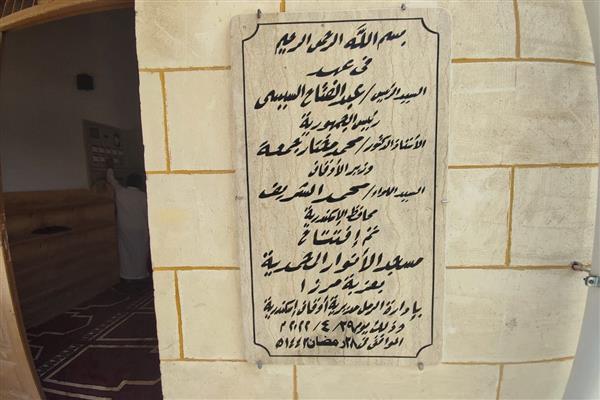 بسم الله الرحمن الرحيم
فى عهد
السيد الرئيس / عبد الفتاح السيسى
رئيس الجمهورية
الأستاذ الدكتور / محمد مختار جمعة
وزير الأوقاف
السيد اللواء / محمد الشريف
محافظ الإسكندرية
تم إفتتاح
مسجد الأنوار المحمدية
بعزبة مرزا
بإدارة الرمل مديرية أوقاف إسكندرية
وذلك يوم ٢٩ / ٤ / ٢٠٢٢ م
الموافق ٢٨ رمضان ١٤٤٣ هـ